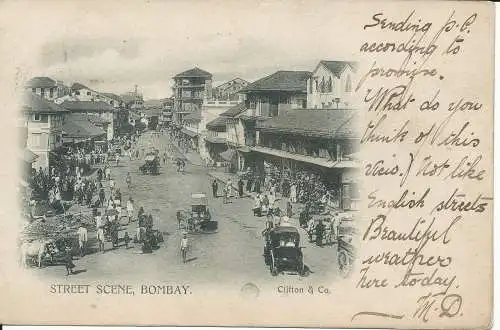 Sending p.c.
according to
promise.
What do you
think of this
view? Not like
English streets
Beautiful
weather
here today.
M.D.
STREET SCENE, BOMBAY.
Clifton & Co.